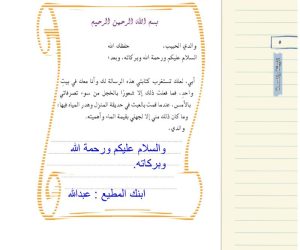 بسم الله الرحمن الرحيم
والدي الحبيب، حفظك الله
السلام عليكم ورحمة الله وبركاته، وبعد؛
أبي، لعلك تستغرب كتابتي هذه الرسالة لك وأنا معك في بيت
واحد، فما فعلت ذلك إلا شعورًا بالخجل من سوء تصرفاتي
بالأمس، عندما قمت بالعبث في حديقة المنزل وهدر المياه فيها؛
وما كان ذلك مني إلا لجهلي بقيمة الماء وأهميته.
والدي،
والسلام عليكم ورحمة الله
وبركاته.
ابنك المطيع : عبدالله